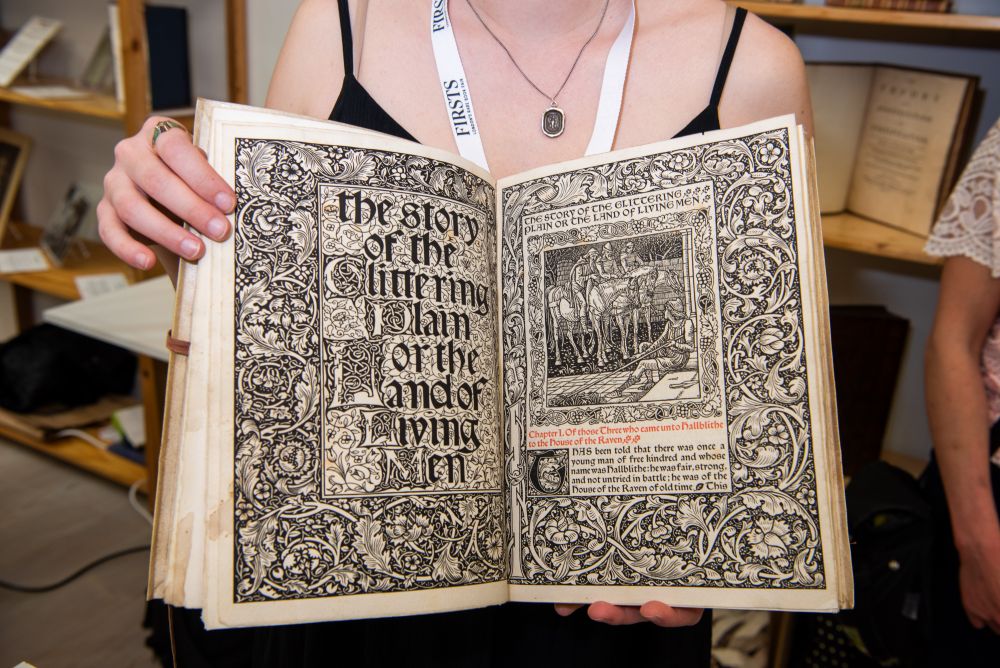 FIRSTS
FIRSTS
the story
of the
Glittering
Plain
or the
Land of
Living
Men
THE STORY OF THE GLITTERING
PLAIN OR THE LAND OF LIVING MEN
Chapter I. Of those Three who came unto Hallblithe
to the House of the Raven
IT HAS been told that there was once a
young man of free kindred and whose
name was Hallblithe: he was fair, strong,
and not untried in battle; he was of the
House of the Raven of old time. This
REPORT